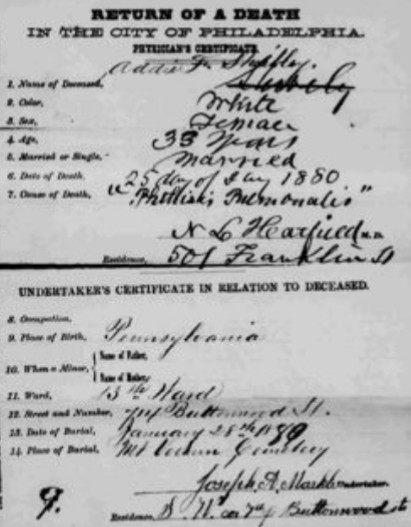 RETURN OF A DEATH
IN THE CITY OF PHILADELPHIA.
PHYSICIAN'S CERTIFICATE.
Addie F.
1. Name of Deceased,
2. Color, White
3. Sex, Female
4. Age, 33 Years
5. Married or Single, Married
6. Date of Death, 25 day of Jany 1880
7. Cause of Death, "Phthisis Pulmonalis"
N L Hatfield M.D.
Residence, 501 Franklin St
UNDERTAKER'S CERTIFICATE IN RELATION TO DECEASED.
8. Occupation,
9. Place of Birth, Pennsylvania
10. When a Minor, { Name of Father,
Name of Mother,
11. Ward, 13th Ward
12. Street and Number, Buttonwood St.
13. Date of Burial, January 28th 1880
14. Place of Burial, Mt Vernon Cemetery
Joseph A. Markle Undertaker.
Residence, Buttonwood st